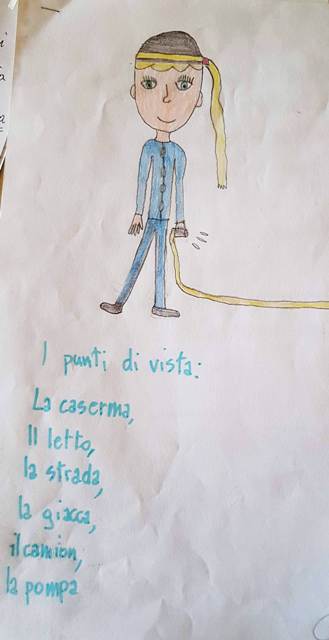 I punti di vista:
La caserma,
Il letto,
la strada,
la giacca,
il camion,
la pompa